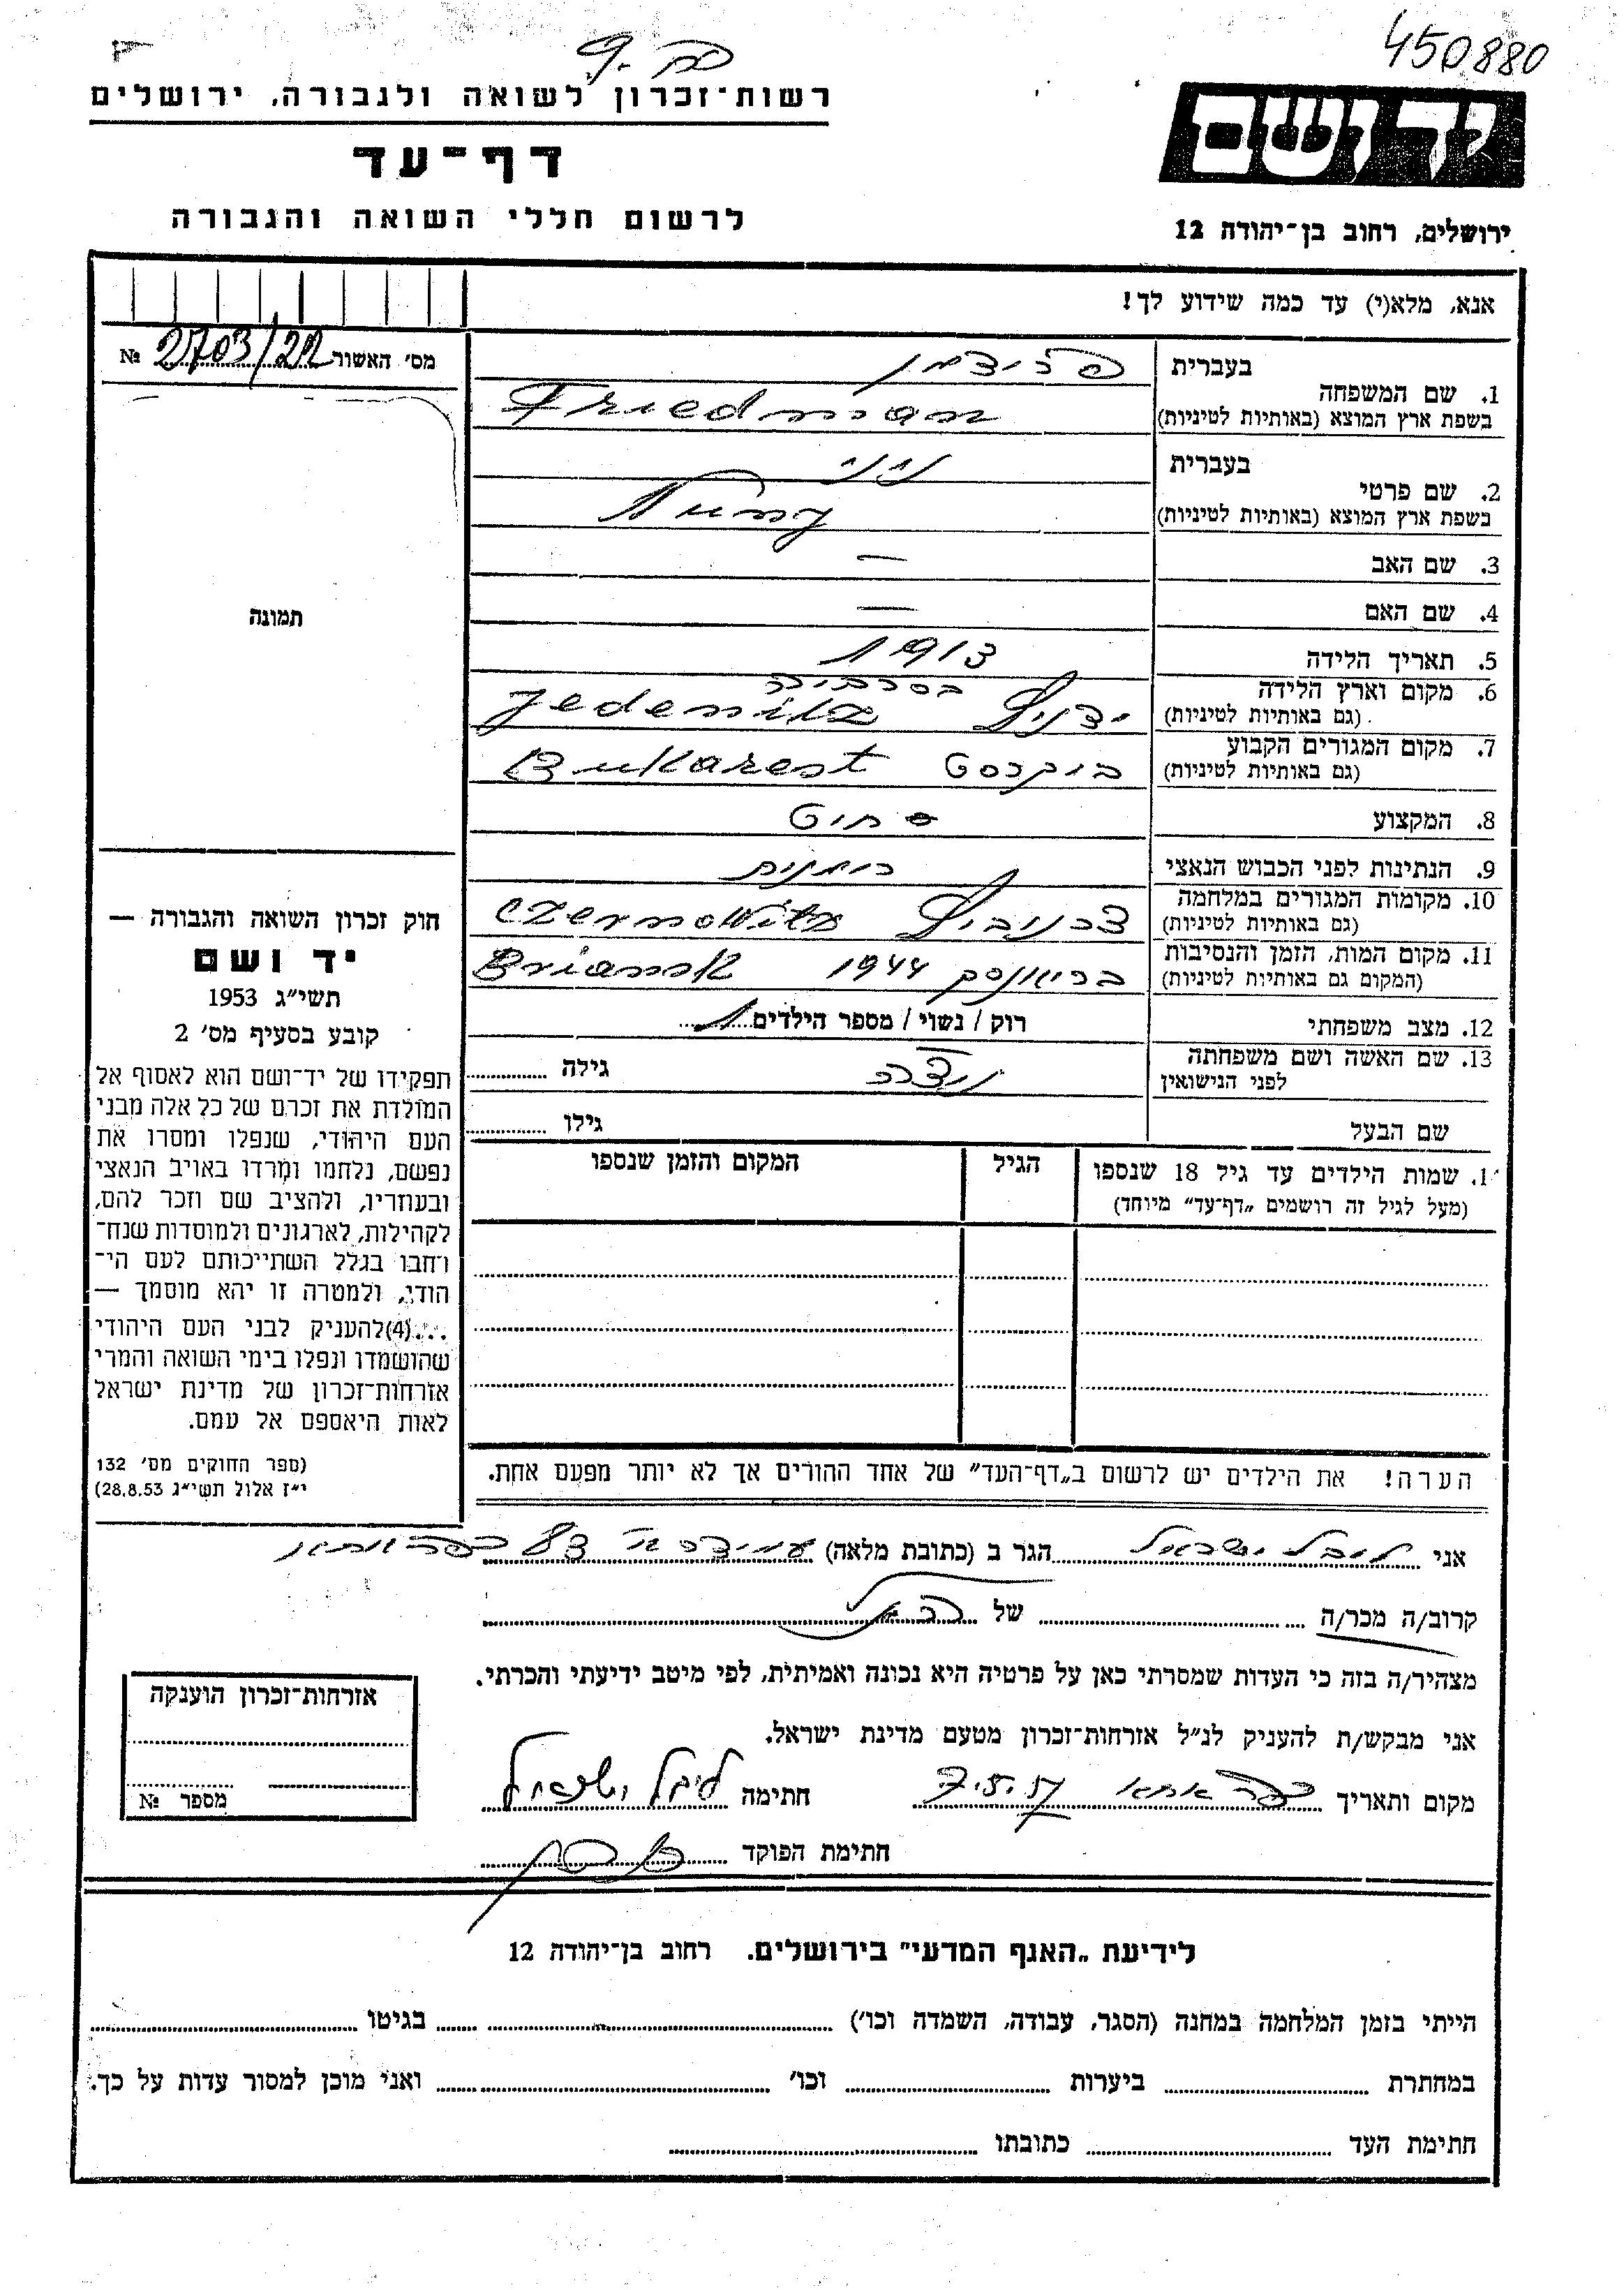 450880
יד ושם
ירושלים, רחוב בן־יהודה 12
רשות־זכרון לשואה ולגבורה, ירושלים
דף־עד
לרשום חללי השואה והגבורה
אנא, מלא(י) עד כמה שידוע לך!
מס׳ האשור 2703/22 №
תמונה
בעברית פרידמן
1. שם המשפחה
בשפת ארץ המוצא (באותיות לטיניות) Friedman
בעברית
2. שם פרטי
בשפת ארץ המוצא (באותיות לטיניות)
3. שם האב —
4. שם האם —
5. תאריך הלידה 1913
6. מקום וארץ הלידה בסרביה
(גם באותיות לטיניות) ידניץ Jedenitz
7. מקום המגורים הקבוע
(גם באותיות לטיניות) בוקרסט Bukarest
8. המקצוע
9. הנתינות לפני הכבוש הנאצי רומנית
10. מקומות המגורים במלחמה
(גם באותיות לטיניות) צרנוביץ Czernowitz
11. מקום המות, הזמן והנסיבות
(המקום גם באותיות לטיניות) בריאנסק 1944 Briansk
12. מצב משפחתי רוק / נשוי / מספר הילדים 1
13. שם האשה ושם משפחתה
לפני הנישואין גילה
שם הבעל גילו
1. שמות הילדים עד גיל 18 שנספו הגיל המקום והזמן שנספו
(מעל לגיל זה רושמים „דף־עד” מיוחד)
הערה! את הילדים יש לרשום ב„דף־העד” של אחד ההורים אך לא יותר מפעם אחת.
חוק זכרון השואה והגבורה —
יד ושם
תשי״ג 1953
קובע בסעיף מס׳ 2
תפקידו של יד־ושם הוא לאסוף אל
המולדת את זכרם של כל אלה מבני
העם היהודי, שנפלו ומסרו את
נפשם, נלחמו ומרדו באויב הנאצי
ובעוזריו, ולהציב שם וזכר להם,
לקהילות, לארגונים ולמוסדות שנח־
רחבו בגלל השתייכותם לעם הי־
הודי, ולמטרה זו יהא מוסמך —
...(4)להעניק לבני העם היהודי
שהושמדו ונפלו בימי השואה והמרי
אזרחות־זכרון של מדינת ישראל
לאות היאספם אל עמם.
(ספר החוקים מס׳ 132
י״ז אלול תשי״ג 28.8.53)
אני לייבל ישראל הגר ב (כתובת מלאה) כפר אתא
קרוב/ה מכר/ה של
מצהיר/ה בזה כי העדות שמסרתי כאן על פרטיה היא נכונה ואמיתית, לפי מיטב ידיעתי והכרתי.
אני מבקש/ת להעניק לנ״ל אזרחות־זכרון מטעם מדינת ישראל.
מקום ותאריך כפר אתא 7.5.57 חתימה לייבל ישראל
חתימת הפוקד
אזרחות־זכרון הוענקה
מספר №
לידיעת „האגף המדעי” בירושלים. רחוב בן־יהודה 12
הייתי בזמן המלחמה במחנה (הסגר, עבודה, השמדה וכו׳) בגיטו
במחתרת ביערות וכו׳ ואני מוכן למסור עדות על כך.
חתימת העד כתובתו